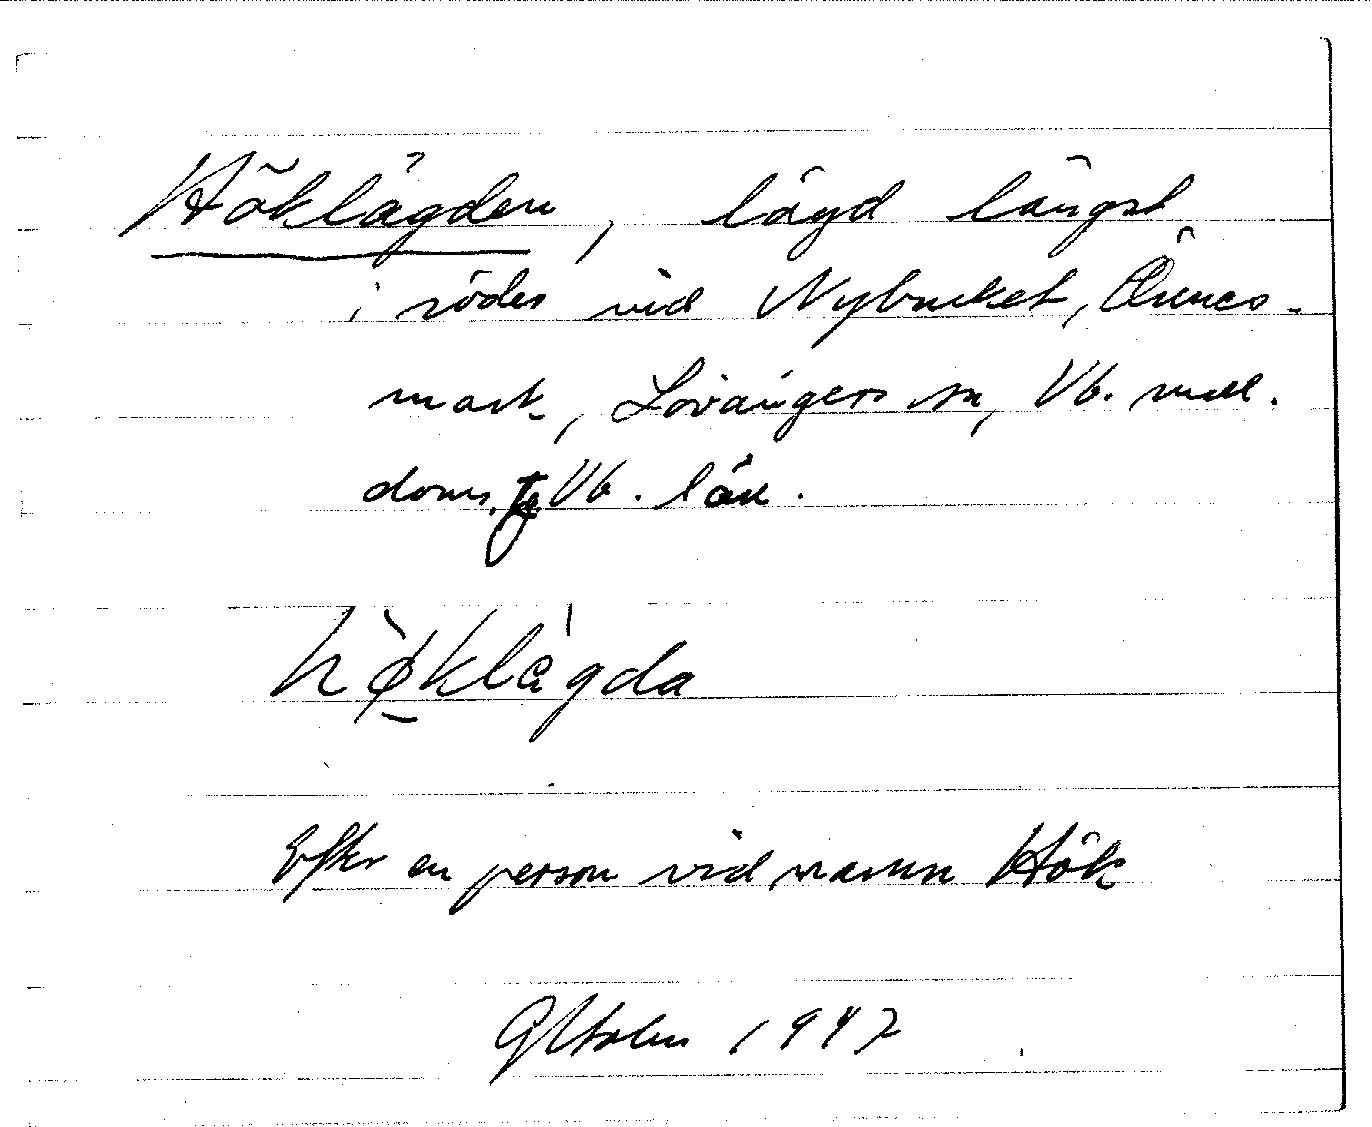 Höklägden, lägd längst
i söder vid Nybruket, Önnes-
mark, Lövångers sn, Vb. mell.
doms. Vb. län.
hø̀klå'gda
Efter en person vid namn Hök
G Holm 1947